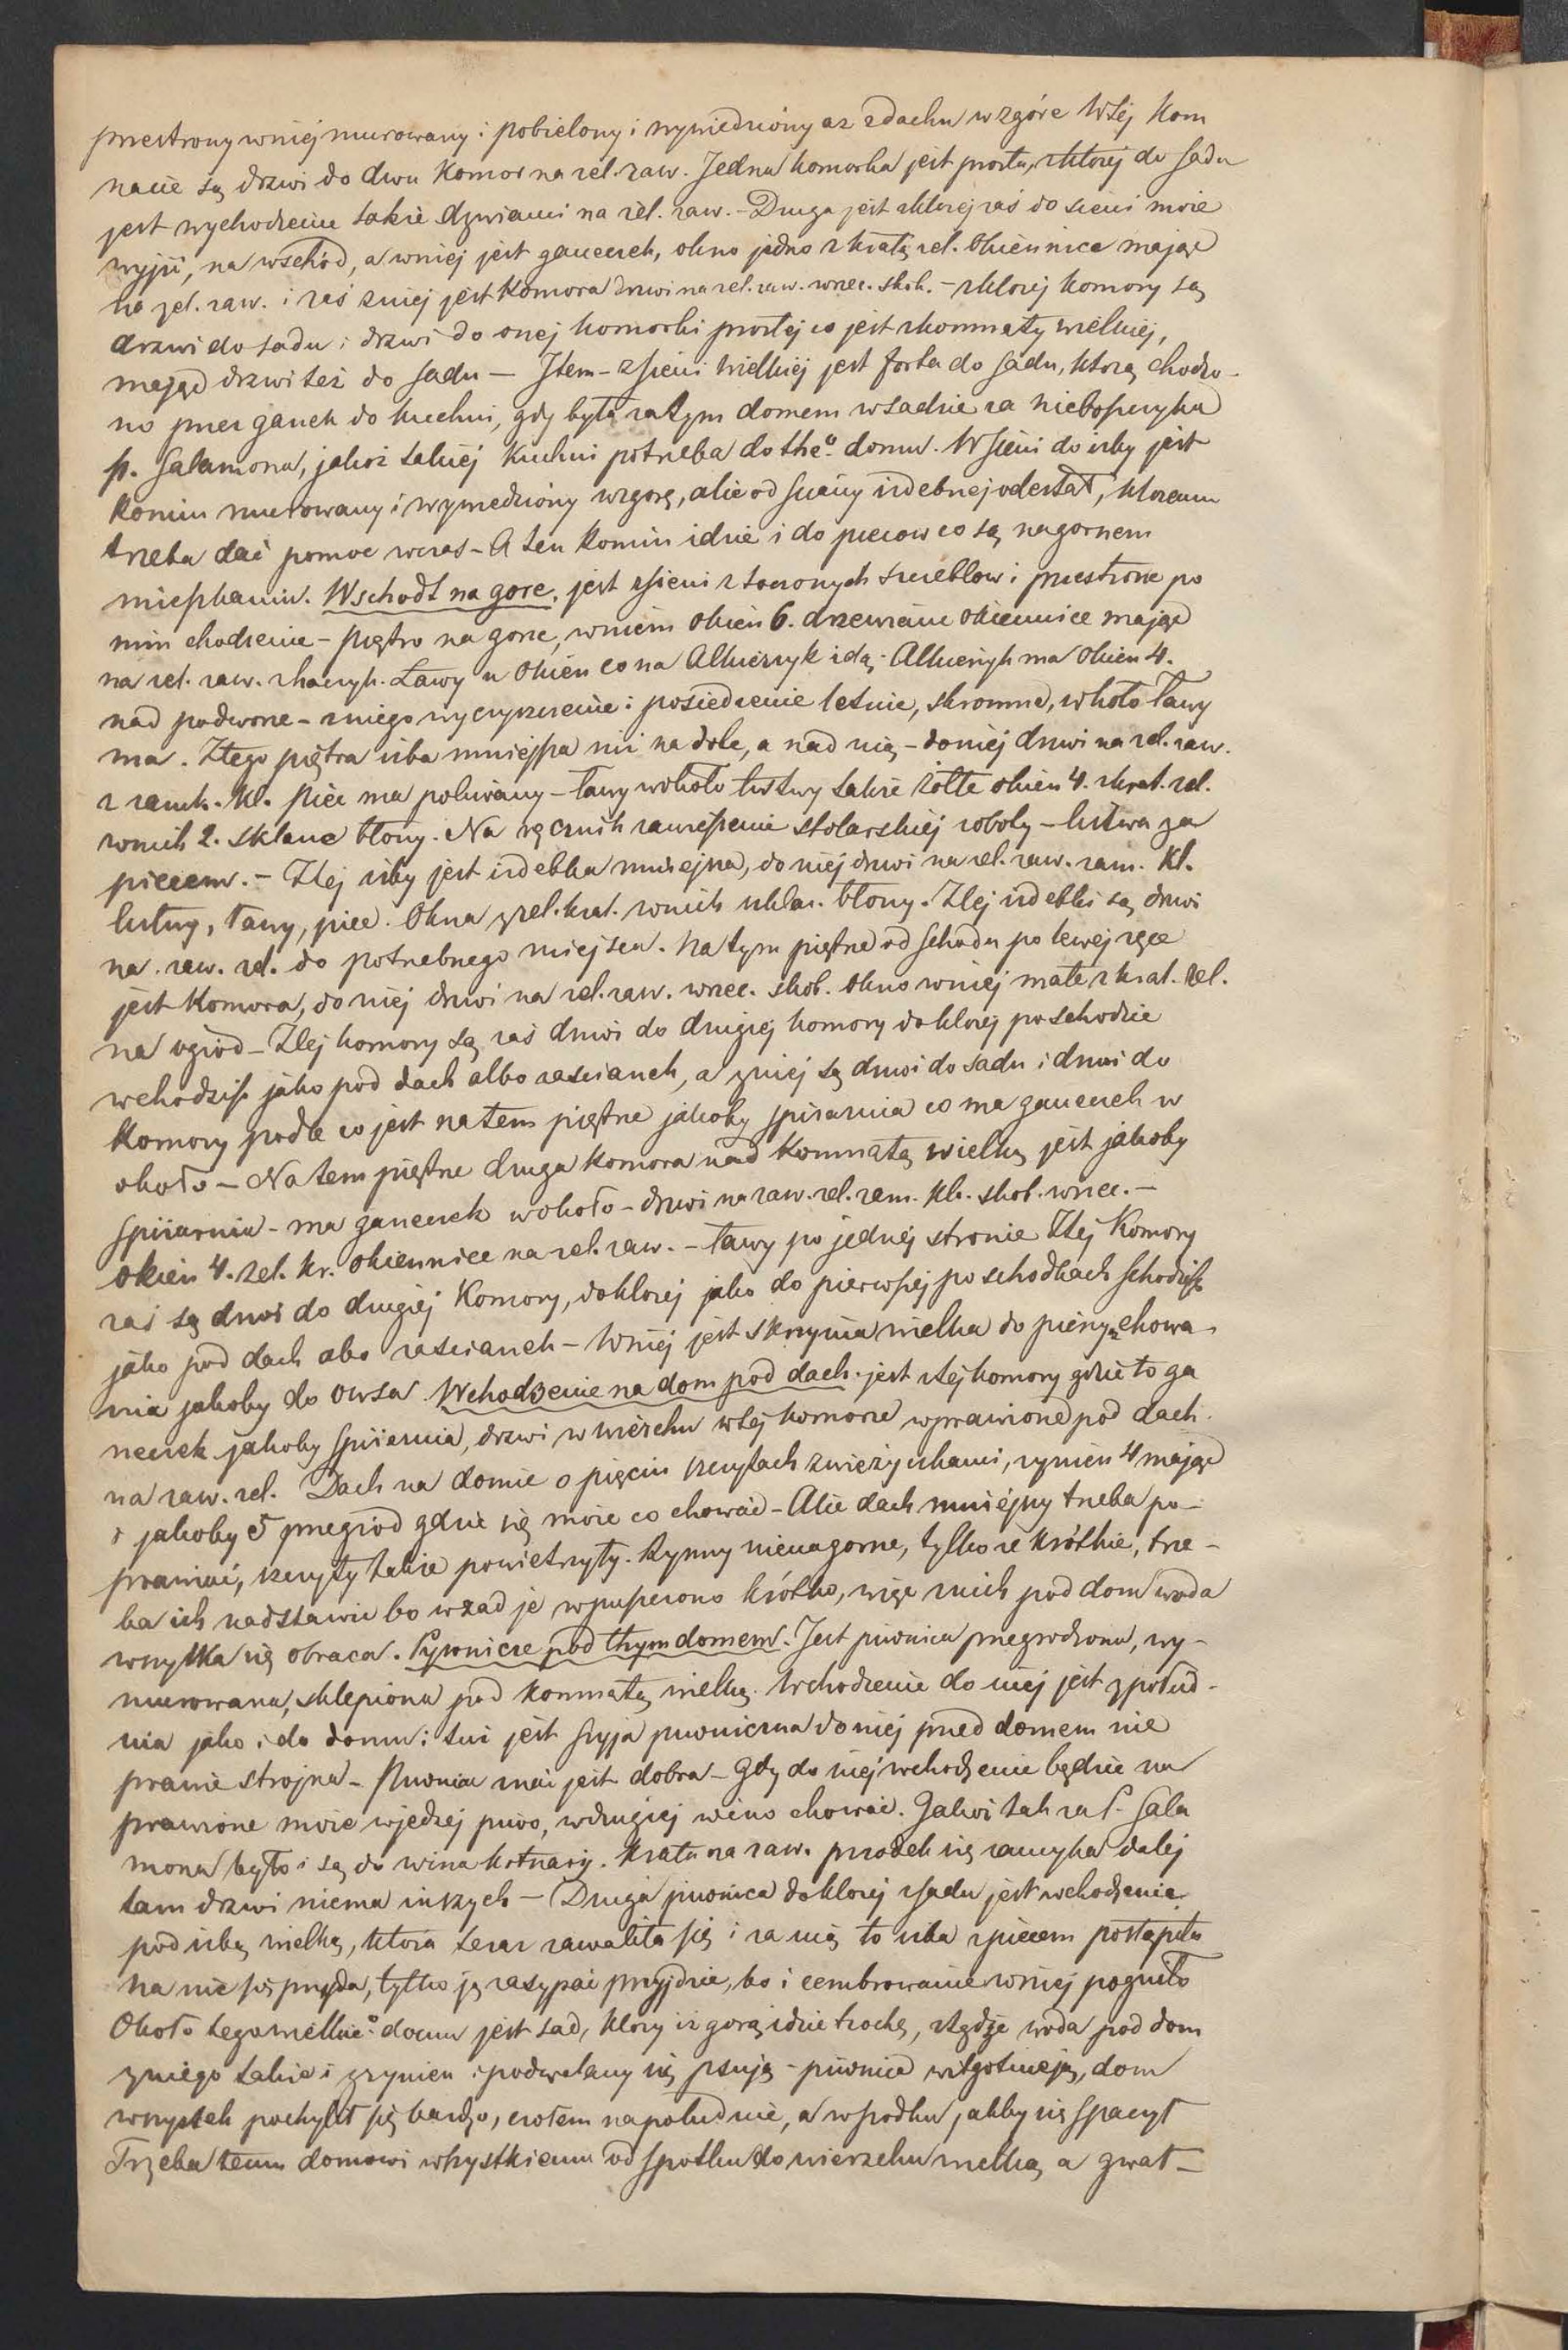 przestrony w niej murowany i pobielony i wywiedziony aż z dachu wzgóre W tej kom
nacie są drzwi do dwu Komor na żel. zaw. Jedna komorka jest prosta, z ktorej do sadu
jest wychodzenie także dzwiami na żel. zaw. – Druga jest z ktorej zaś do sieni może
wyjść, na wschód, a w niej jest ganeczek, okno jedno z kratą żel. Okiennice mając
na żel. zaw. i zaś z niej jest Komora drzwi na żel. zaw. wrzec. skob. – z ktorej komory są
drzwi do sadu i drzwi do onej komorki prostej co jest z komnaty wielkiej,
mając drzwi też do sadu – Item – z sieni wielkiej jest forta do sadu, którą chodzo-
no przez ganek do kuchni, gdy była za tym domem w sadzie za nieboszczyka
p. Salamona, jakoż takiej kuchni potrzeba do the° domu. W sieni do izby jest
Komin murowany i wywiedziony wzgorę, ale od ściany izdebnej odestał, ktoremu
trzeba dać pomoc wczas – A ten Komin idzie i do piecow co są na gornem
mieszkaniu. Wschodt na gore, jest z sieni z toczonych szczeblow i przestrone po
nim chodzenie – piętro na gorze, w niem Okien 6. drzewiane okiennice mając
na żel. zaw. z haczyk. Ławy u Okien co na Alkierzyk idą. Alkierzyk ma Okien 4.
nad podworze – z niego wycryszczenie i posiedzenie letnie, skromne, w koło ławy
ma. Z tego piętra izba mniejsza niż na dole, a nad nią – do niej drzwi na żel. zaw.
z zamk. kl. Piec ma polewany – ławy wokoło listwy także żółte okien 4. z krat. żel.
w nich 2. sklane błony. Na ręcznik zawieszenie stolarskiej roboty – listwa za
piecem. – Z tej izby jest izdebka mniejsza, do niej drzwi na żel. zaw. zam. kl.
listwy, ławy, piec. Okna z żel. krat. w nich szklan. błony. Z tej izdebki są drzwi
na zaw. żel. do potrzebnego miejsca. Na tym piętrze od schodu po lewej ręce
jest Komora, do niej drzwi na żel. zaw. wrzec. skob. Okno w niej małe z krat. żel.
na ogród – Z tej komory są zaś drzwi do drugiej komory do ktorej po schodzie
wchodzisz jako pod dach albo zascianek, a z niej są drzwi do sadu i drzwi do
Komory podle co jest na tem piętrze jakoby spizarnia co ma ganeczek w
około – Na tem piętrze druga Komora nad Komnatą wielką jest jakoby
spizarnia – ma ganeczek wokoło – drzwi na zaw. żel. zam. kl. skob. wrzec. –
Okien 4. żel. kr. okiennice na żel. zaw. – ławy po jednej stronie Z tej Komory
zaś są drzwi do drugiej Komory, do ktorej jako do pierwszej po schodkach schodzisz
jako pod dach abo zascianek – W niej jest skrzynia wielka do pierzy chowa-
nia jakoby do owsa. Wchodzenie na dom pod dach. jest z tej komory gdzie to ga
neczek jakoby spizarnia, drzwi w wierzchu w tej komorze wprawione pod dach
na zaw. żel. Dach na domie o pięciu szczytach z wieżyczkami, rynien 4 mając
i jakoby 5 przegród gdzie się może co chować – Ale dach mniejszy trzeba po-
prawiać, szczyty także powietrzyły. Rynny nienagorne, tylko że krótkie, trze-
ba ich nadstawić bo wzad je wpuszczono krótko, więc z nich pod dom woda
wszytka się obraca. Pywnicze pod thym domem. Jest piwnica przegrodzona, wy-
murowana, sklepiona pod Komnatą wielką. Wchodzenie do niej jest z połud-
nia jako i do domu: tuż jest szyja piwniczna do niej przed domem nie
prawie strojna – Piwnica znać jest dobra – Gdy do niej wchodzenie będzie na
prawione może w jednej piwo, w drugiej wino chować. Jakoż tak za P. Sala
mona było i są do wina kotnary. Krata na zaw. przodek się zamyka dalej
tam drzwi niema inszych – Druga piwnica do ktorej z sadu jest wchodzenie
pod izbą wielką, która teraz zawaliła się i za nią to izba z piecem postąpiła
na nic się przyda, tylko ją zasypać przyjdzie, bo i cembrowanie w niej pogniło
Około tego wielkie° domu jest sad, który iż gorą idzie trochę, ztądże woda pod dom
z niego także i z rynien i podwalany się psują – piwnice wilgotnieją, dom
wszystek pochylił się bardzo, czołem na południe, a w środku jakby się spaczył
Trzeba temu domowi wszystkiemu od spodku do wierzchu wielką a gwał–